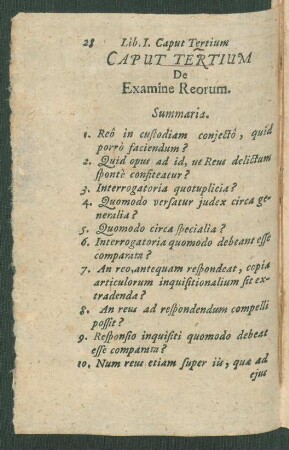 28 Lib. I. Caput Tertium
CAPUT TERTIUM
De
Examine Reorum.
Summaria.
1. Reô in custodiam conjectô, quid
porrò faciendum?
2. Quid opus ad id, ut Reus delictum
spontè confiteatur?
3. Interrogatoria quotuplicia?
4. Quomodo versatur judex circa ge-
neralia?
5. Quomodo circa specialia?
6. Interrogatoria quomodo debeant esse
comparata?
7. An reo, antequam respondeat, copia
articulorum inquisitionalium sit ex-
tradenda?
8. An reus ad respondendum compelli
possit?
9. Responsio inquisiti quomodo debeat
esse comparata?
10. Num reus etiam super iis, quæ ad
ejus